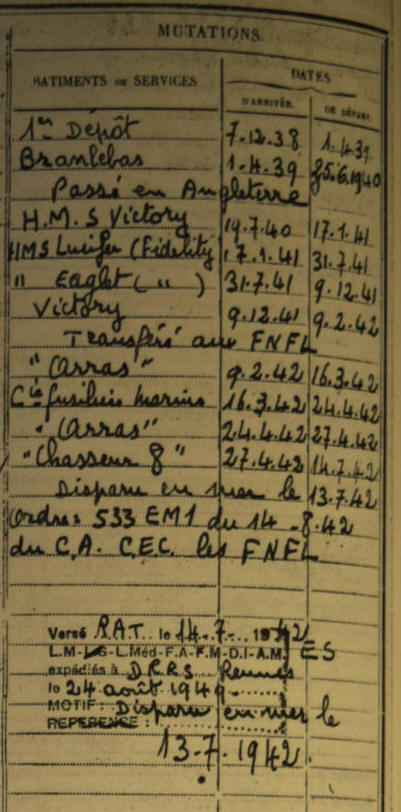 MUTATIONS.
BATIMENTS ou SERVICES
DATES
D'ARRIVÉE. DE DÉPART.
1er Dépôt 7.12.38 1.4.39
Branlebas 1.4.39 25.6.1940
Passé en Angleterre
H.M.S Victory 19.7.40 17.1.41
HMS Lucifer (Fidelity) 17.1.41 31.7.41
" Eaglet ( " ) 31.7.41 9.12.41
Victory 9.12.41 9.2.42
Transféré aux FNFL
"Arras" 9.2.42 16.3.42
Cie fusiliers marins 16.3.42 24.4.42
"Arras" 24.4.42 27.4.42
"Chasseur 8" 27.4.42 14.7.42
Disparu en mer le 13.7.42
Ordre: 533 EM1 du 14-8.42
du C.A. C.E.C. les FNFL
Versé R.A.T. le 14.7. 1942
L.M-L-S-L.Méd-F.A-F.M-D.I-A.M. ES
expédiés à DRRS Rennes
le 24 août 1949
MOTIF: Disparu en mer le
REFERENCE:
13.7.1942.